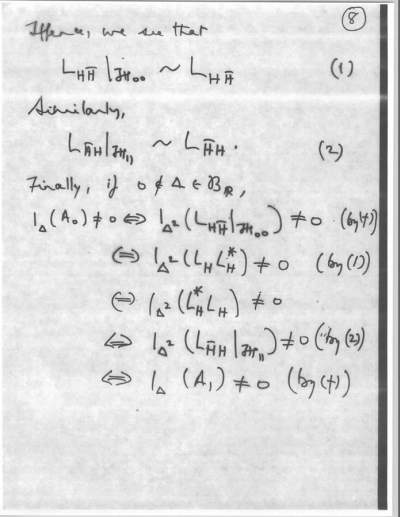 8
Hence, we see that
L_{HH̄}|_{ℋ₀₀} ~ L_{HH̄} (1)
Similarly,
L_{H̄H}|_{ℋ₁₁} ~ L_{H̄H}. (2)
Finally, if 0 ∉ Δ ∈ ℬ_R,
1_Δ(A₀) ≠ 0 ⇔ 1_{Δ²}(L_{HH̄}|_{ℋ₀₀}) ≠ 0 (by(4))
⇔ 1_{Δ²}(L_H L_H^*) ≠ 0 (by(1))
⇔ 1_{Δ²}(L_H^* L_H) ≠ 0
⇔ 1_{Δ²}(L_{H̄H}|_{ℋ₁₁}) ≠ 0 (by(2))
⇔ 1_Δ(A₁) ≠ 0 (by(4))